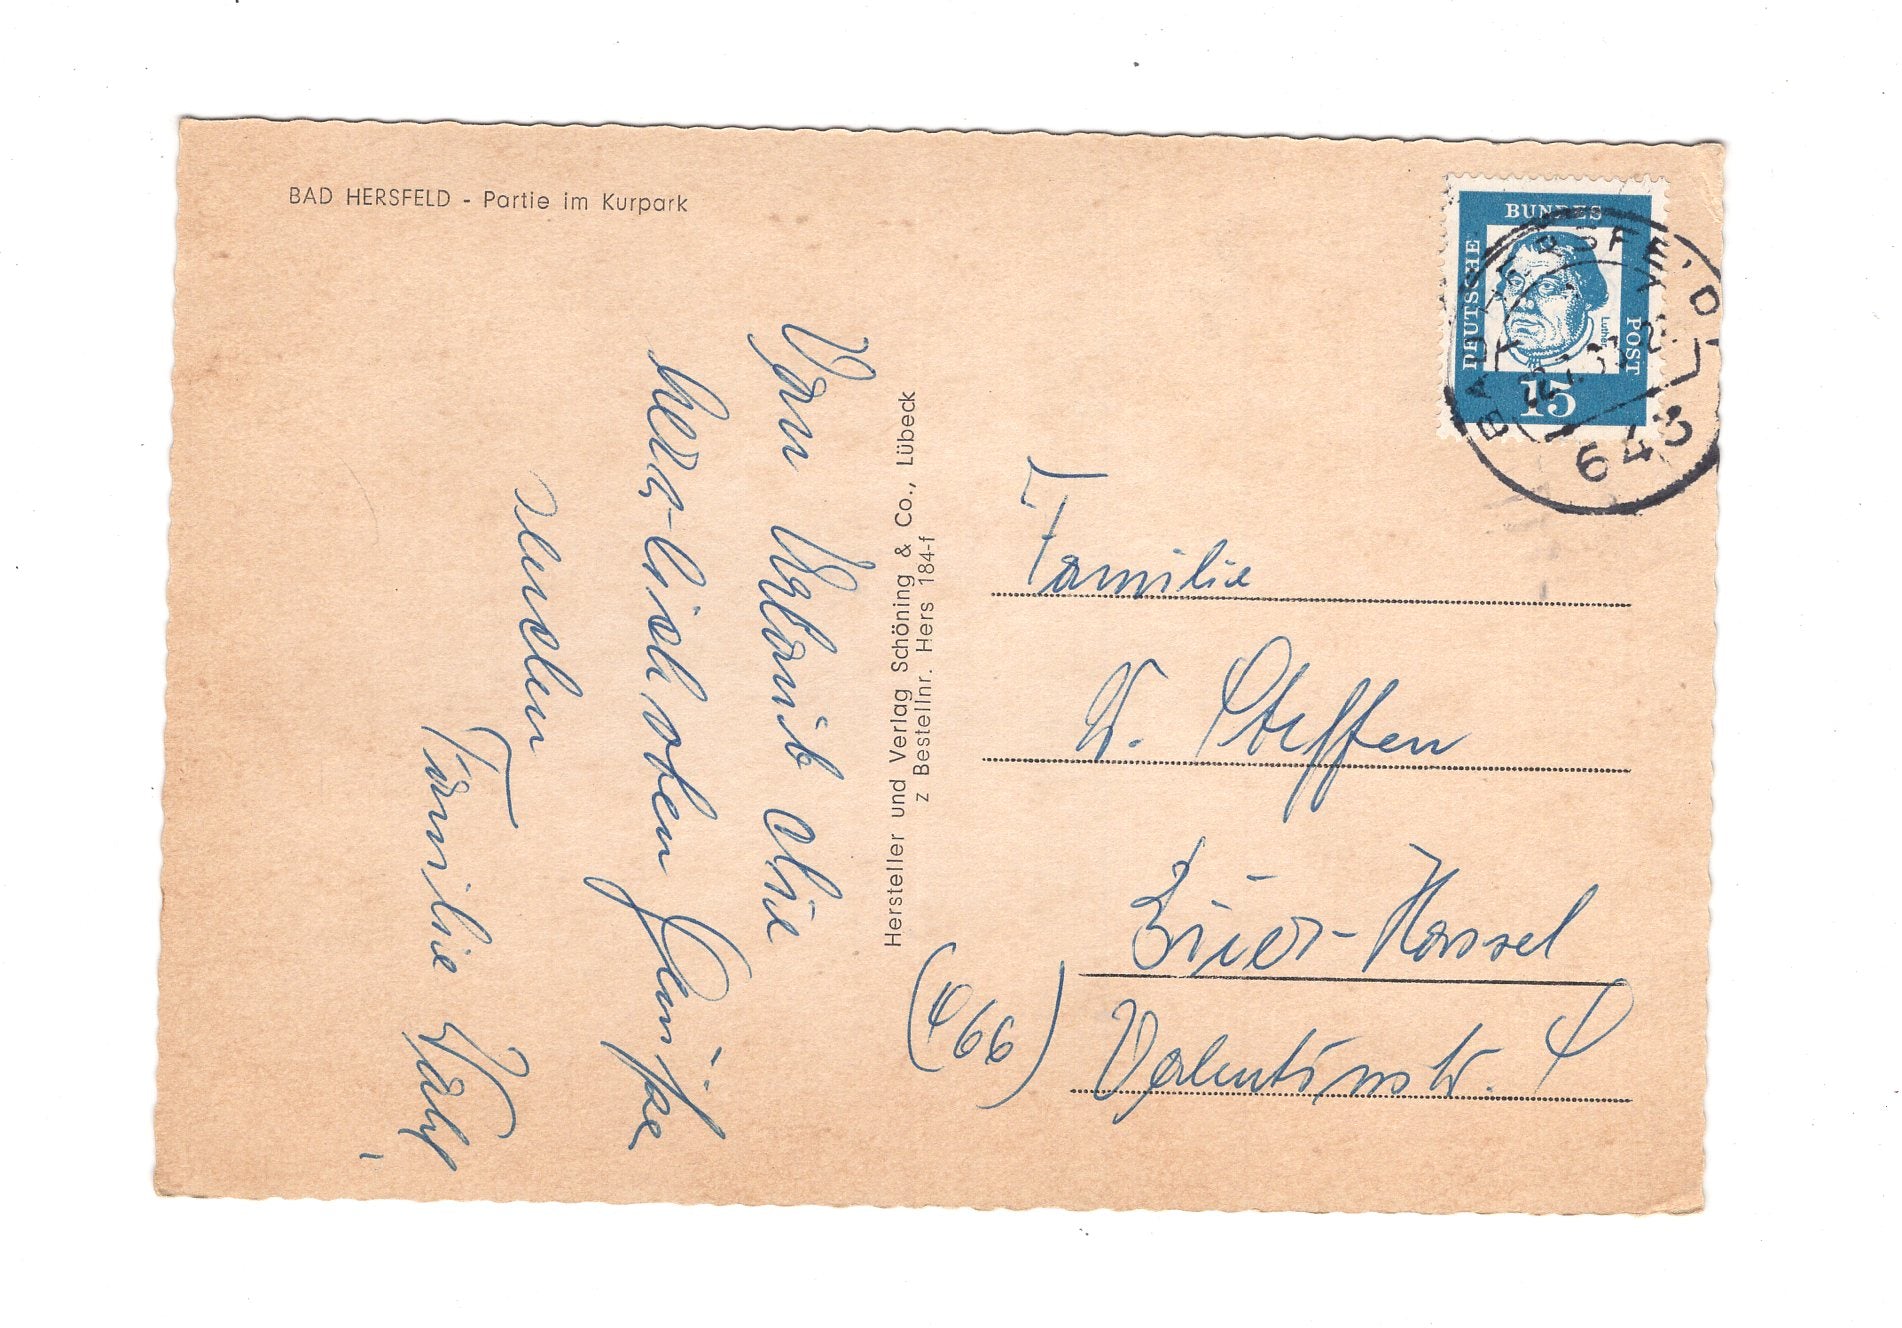 BAD HERSFELD - Partie im Kurpark
Vom Urlaub die
herz-lichsten Grüße
senden
Familie
Hersteller und Verlag Schöning & Co., Lübeck
z Bestellnr. Hers 184-f
DEUTSCHE BUNDES POST
Luther
15
BAD HERSFELD
643
Familie
W. Steffen
Buer-Hassel
(466) Valentinstr. 9